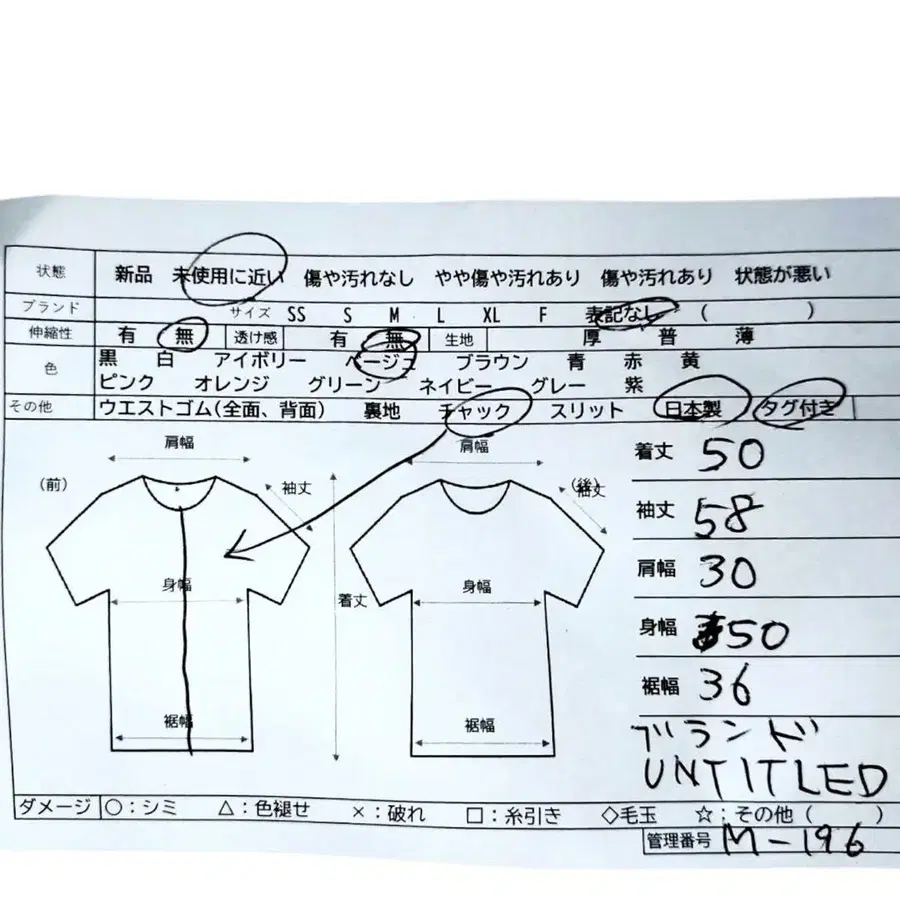 状態 新品 未使用に近い 傷や汚れなし やや傷や汚れあり 傷や汚れあり 状態が悪い
ブランド サイズ SS S M L XL F 表記なし ( )
伸縮性 有 無 透け感 有 無 生地 厚 普 薄
色 黒 白 アイボリー ベージュ ブラウン 青 赤 黄
ピンク オレンジ グリーン ネイビー グレー 紫
その他 ウエストゴム(全面、背面) 裏地 チャック スリット 日本製 タグ付き
肩幅 肩幅
着丈 50
(前) 袖丈 (後) 袖丈
袖丈 58
肩幅 30
身幅 着丈 身幅
身幅 50
裾幅 36
裾幅 裾幅
ブランド
UNTITLED
ダメージ ○:シミ △:色褪せ ×:破れ □:糸引き ◇毛玉 ☆:その他 ( )
管理番号 M-196